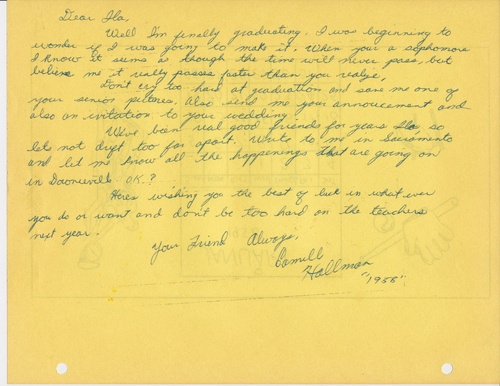 Dear Ila,
Well I'm finally graduating. I was beginning to
wonder if I was going to make it. When your a sophomore
I know it sums as though the time will never pass, but
believe me it really passes faster than you realize,
Don't cry too hard at graduation and save me one of
your senior pictures. Also send me your annoucement and
also an invitation to your wedding.
We've been real good friends for years Ila so
lets not drift too far apart. Write to me in Sacramento
and let me know all the happenings that are going on
in Downieville. O.K.?
Heres wishing you the best of luck in what ever
you do or want and don't be too hard on the teachers
next year.
Your Friend Always,
Hallman
"1955"